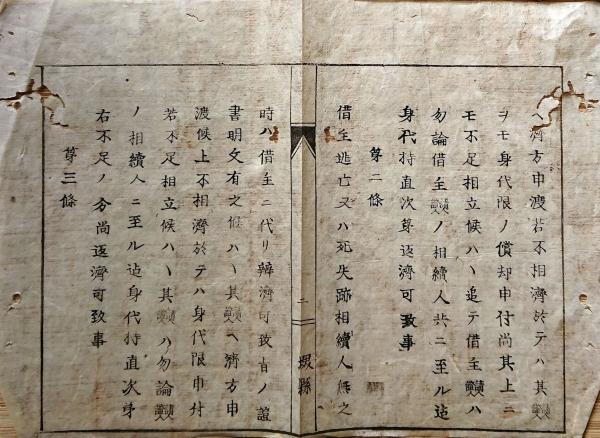 ヘ濟方申渡若不相濟於テハ其
ヲモ身代限ノ償却申付尚其上ニ
モ不足相立候ハヽ追テ借主ハ
勿論借主ノ相續人共ニ至ル迠
身代持直次苐返濟可致事
苐二條
借主逃亡又ハ死失跡相續人無之
二
堺縣
時ハ借主ニ代リ辨濟可致旨ノ證
書明文有之候ハヽ其ヘ濟方申
渡候上不相濟於テハ身代限申付
若不足相立候ハヽ其ハ勿論
ノ相續人ニ至ル迠身代持直次苐
右不足ノ分尚返濟可致事
苐三條